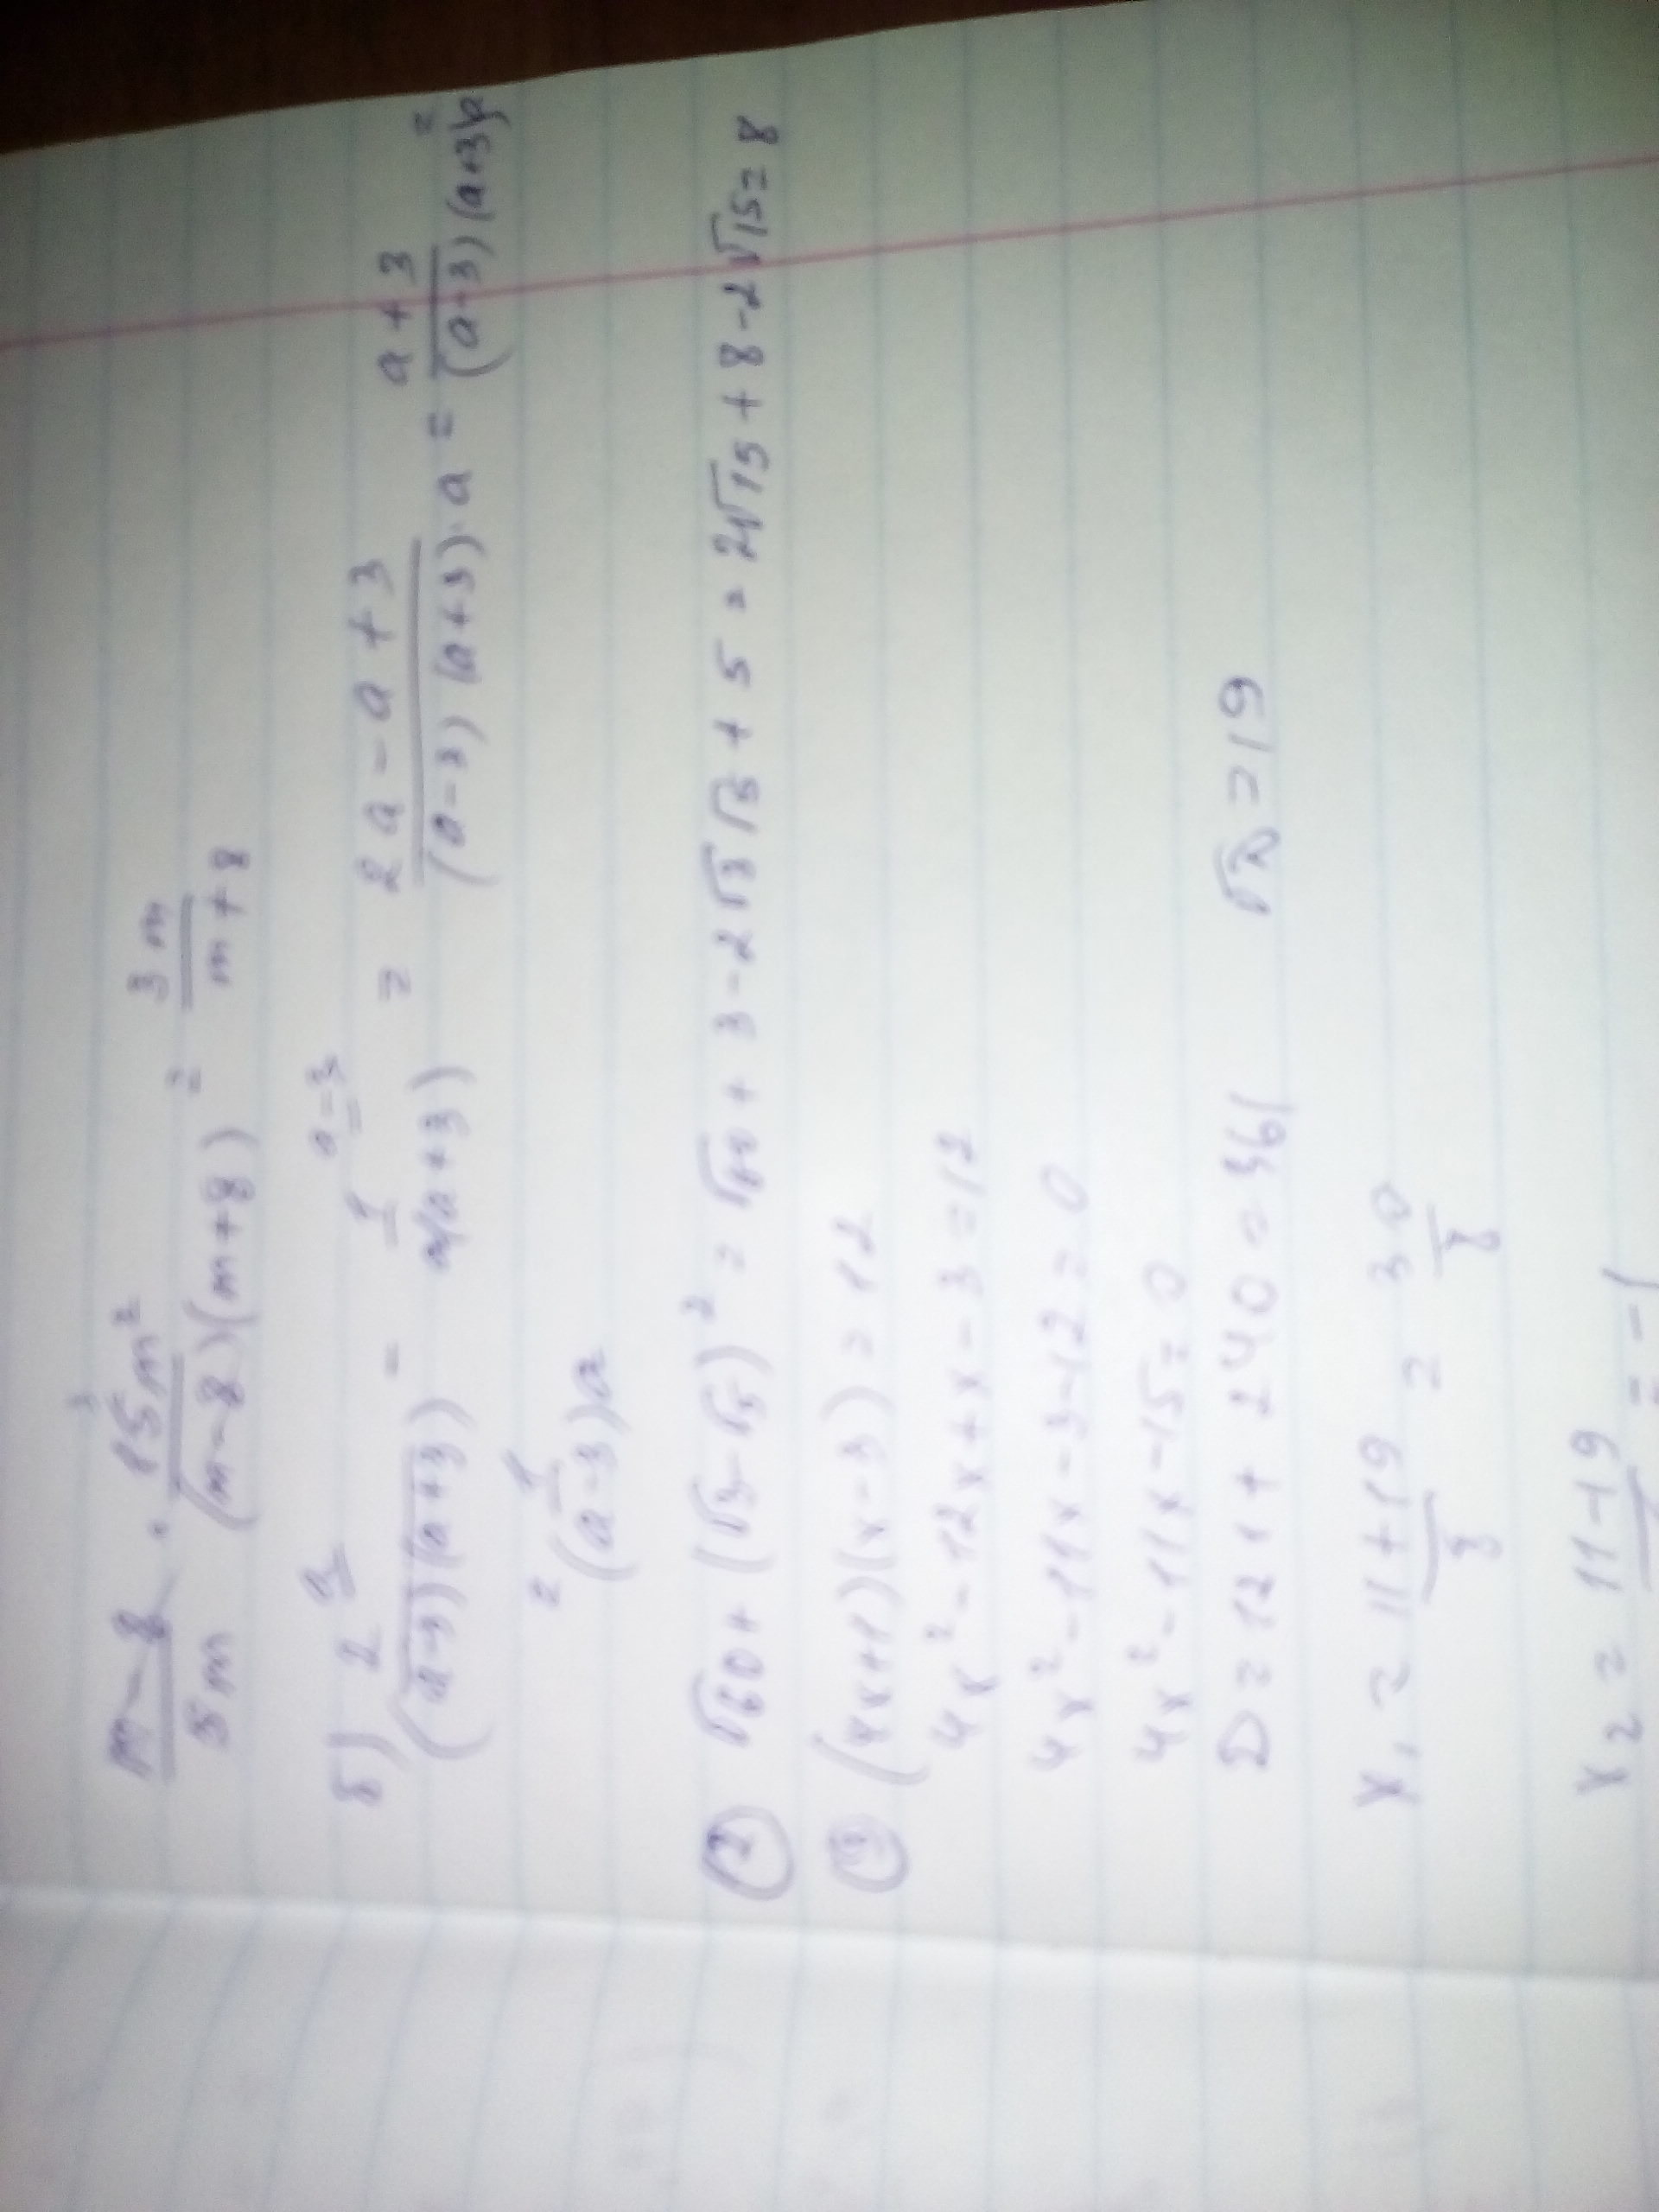 m-8/5m · 15m²/(m-8)(m+8) = 3m/m+8
б) 2/(a-3)(a+3) - 1/a(a+3) = 2a-a+3/(a-3)(a+3)·a = a+3/(a-3)(a+3)a =
= 1/(a-3)a
② √60+(√3-√5)² = √60+3-2√3√5+5=2√15+8-2√15=8
③ (4x+1)(x-3)=12
4x²-12x+x-3=12
4x²-11x-3-12=0
4x²-11x-15=0
D=121+240=361 √D=19
x₁=11+19/8=30/8
x₂=11-19/ =-1